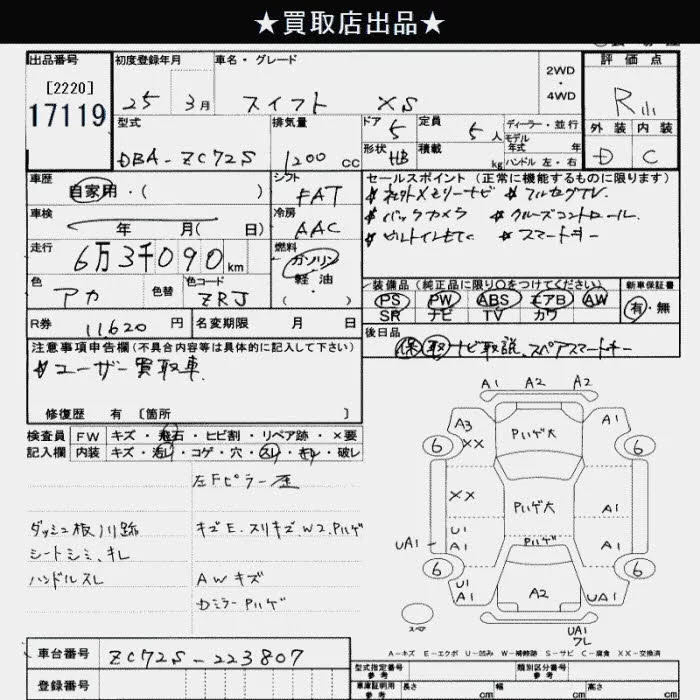 ★買取店出品★
出品番号 初度登録年月 車名・グレード 評価点
[2220]
17119
25 3月 スイフト XS 2WD・4WD R小
型式 排気量 ドア 5 定員 5人 ディーラー・並行
モデル年式 年
外装 内装
DBA-ZC72S 1200cc 形状 HB 積載 kg ハンドル 左・右 D C
車歴 シフト セールスポイント(正常に機能するものに限ります)
自家用・( ) FAT ☆社外メモリーナビ ☆フルセグTV.
車検 冷房 ☆バックカメラ ☆クルーズコントロール.
年 月( 日) AAC ☆ビルトインETC ☆スマートキー
走行 燃料
6万3千090km ガソリン
軽油
( )
色 色替 色コード 装備品(純正品に限り○をつけてください) 新車保証書
アカ ZRJ PS PW ABS エアB AW 有・無
SR ナビ TV カワ
R券 11,620円 名変期限 月 日 後日品
注意事項申告欄(不具合内容等は具体的に記入して下さい) 保 取 ナビ取説、スペアスマートキー
☆ユーザー買取車.
修復歴 有 〔箇所 〕
検査員 FW キズ・飛石・ヒビ割・リペア跡・×要
記入欄 内装 キズ・汚レ・コゲ・穴・スレ・キレ・破レ
左Fピラー歪
ダッシュ板川跡 キズE.スリキズ.W2.Pハゲ
シートシミ、キレ
ハンドルスレ AWキズ
カミラーPハゲ
A1 A2 A2
A3 A1
XX Pハゲ大
6 6
XX Pハゲ大 A1
U1
UA1 A1 Pハゲ A1
6 6
U1
A1 A2 UA1
スペア
UA1
ワレ
A-キズ E-エクボ U-凹み W-補修跡 S-サビ C-腐食 XX-交換済
車台番号 ZC72S-223807
登録番号
型式指定番号 参考 類別区分番号 参考
車庫証明用 参考 長さ cm 幅 cm 高さ cm